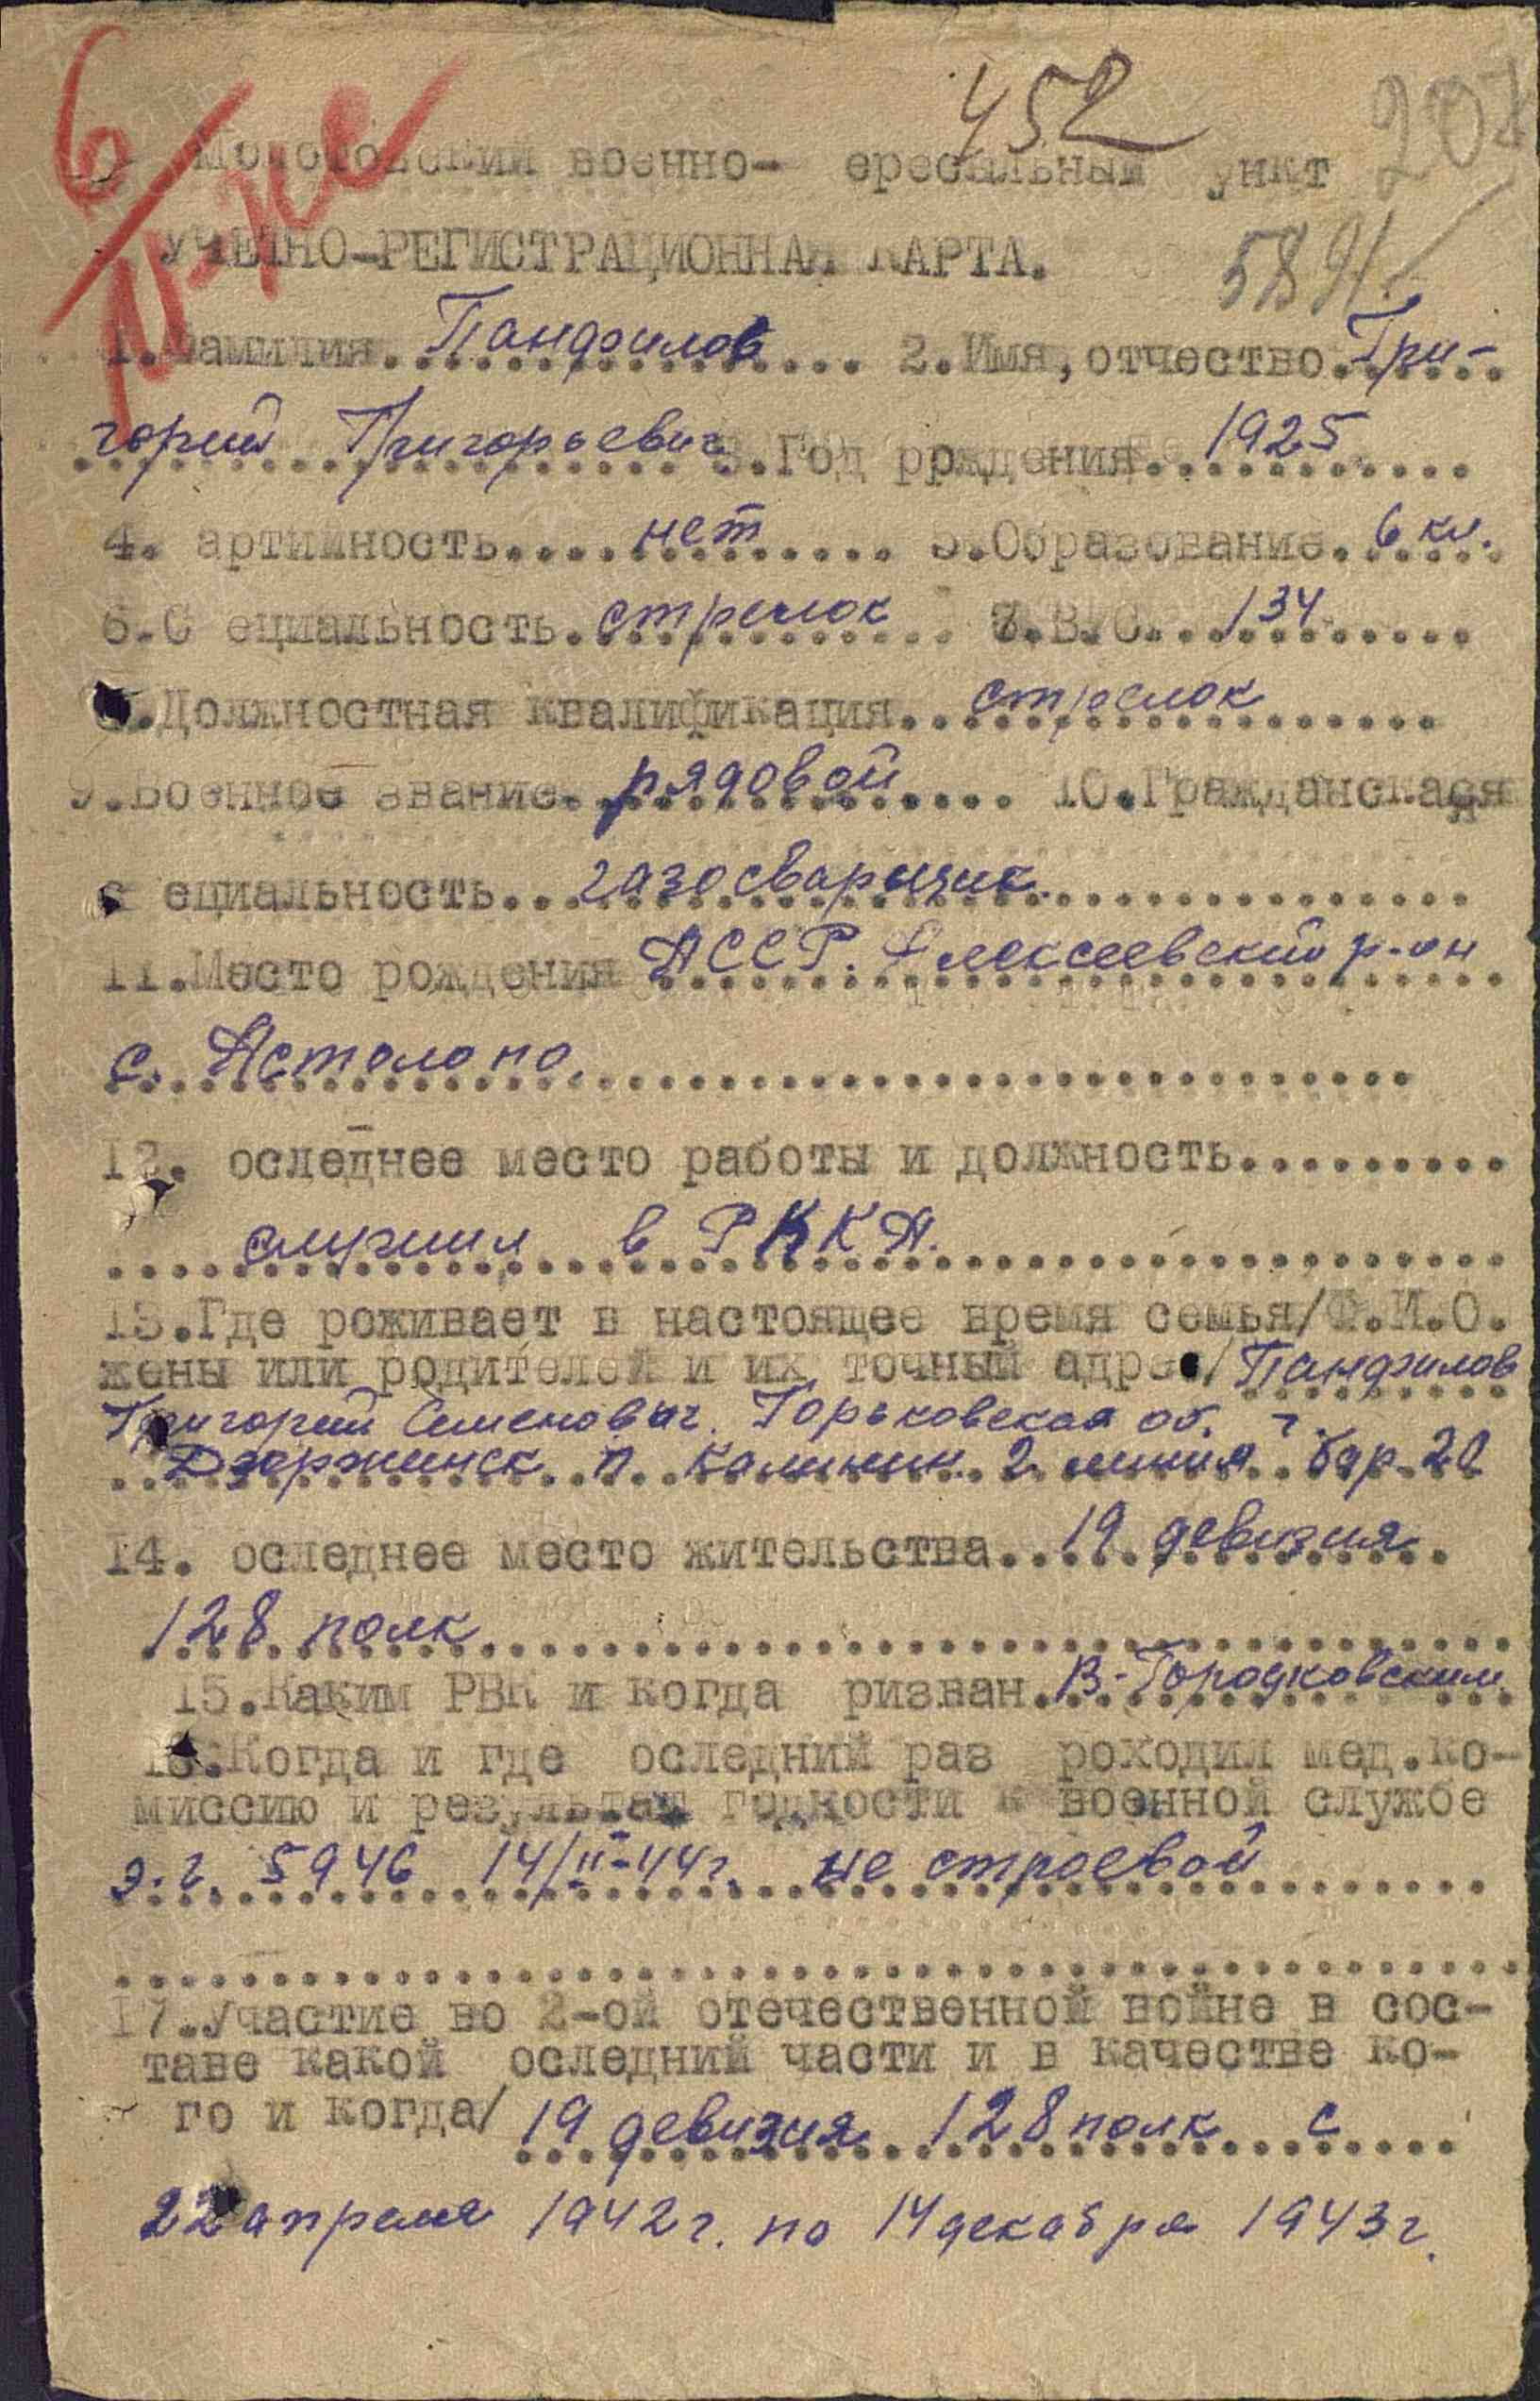 6
452
207
Молотовский военно- ересыльный ункт
УЧЕТНО-РЕГИСТРАЦИОННАЯ КАРТА.
5891
1.Фамилия. Панфилов ... 2.Имя, отчество. Гри-
горий Григорьевич 3.Год ррждения. 1925
4. артийность.... нет .... 5.Образование. 6 кл.
6.С ециальность. стрелок 7.В.С. 134
8.Должностная квалификация.. стрелок
9.Военное звание. рядовой 10.Гражданскася
с ециальность... газосварщик.
11.Место рождения АССР. Алексеевский р-он
с. Астолопо.
12. оследнее место работы и должность.........
служил в РККА.
13.Где роживает в настоящее время семья/Ф.И.О.
жены или родителей и их точный адрес/ Панфилов
Григорий Семенович. Горьковская об. г.
Дзержинск п. Калинин. 2 линия бар. 20
14. оследнее место жительства... 19 девизия
128 полк
15.Каким РВК и когда ризван. В-Городковским
16.Когда и где оследний раз роходил мед.ко-
миссию и результат годности к военной службе
э.г. 5946 14/II-44г. не строевой
17.Участие во 2-ой отечественной войне в сос-
таве какой оследний части и в качестве ко-
го и когда/ 19 девизия 128 полк с
22 апреля 1942г. по 14 декабря 1943г.